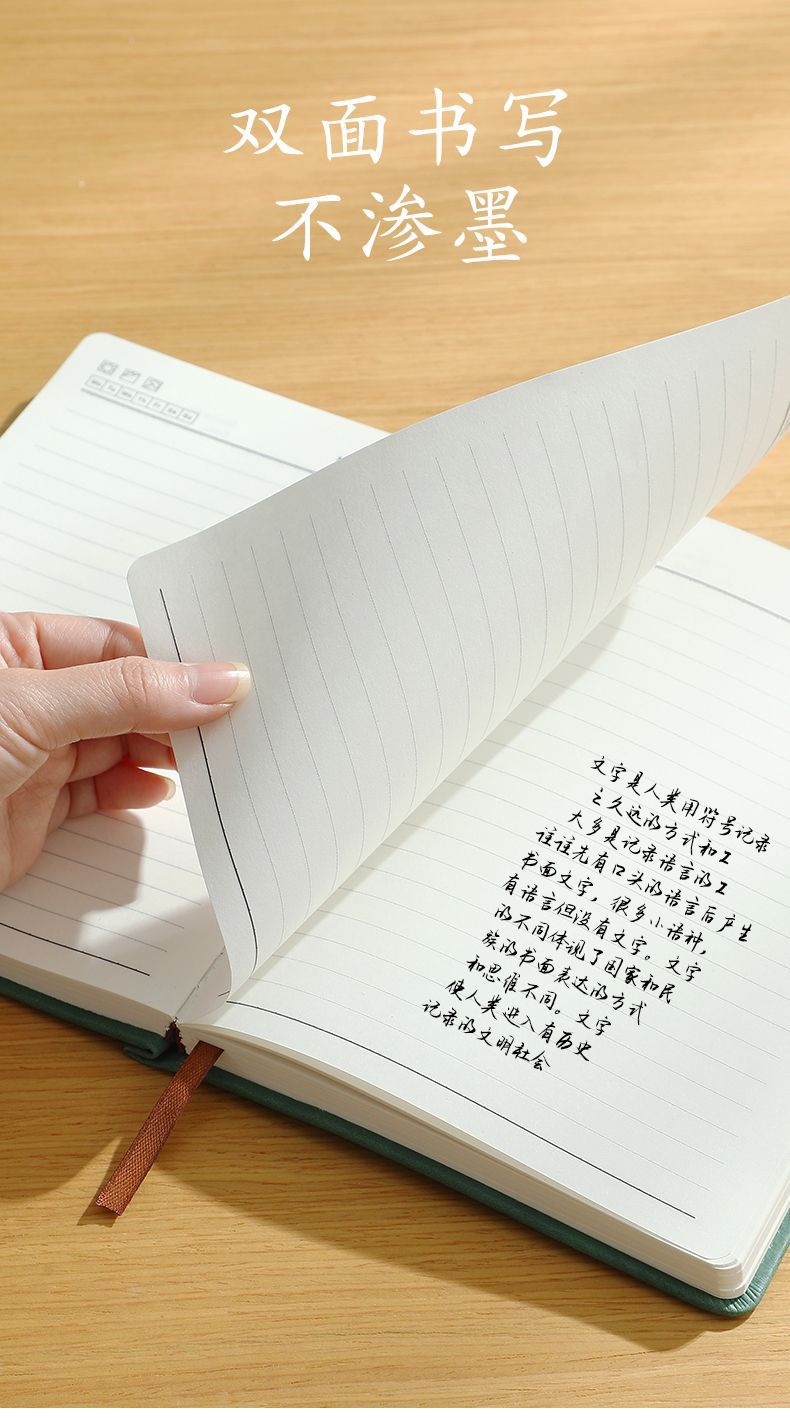 双面书写
不渗墨
Mo Tu We Th Fr Sa Su
文字是人类用符号记录
之久远的方式和工
大多是记录语言的工
往往先有口头的语言后产生
书面文字，很多小语种，
有语言但没有文字。文字
的不同体现了国家和民
族的书面表达的方式
和思维不同。文字
使人类进入有历史
记录的文明社会